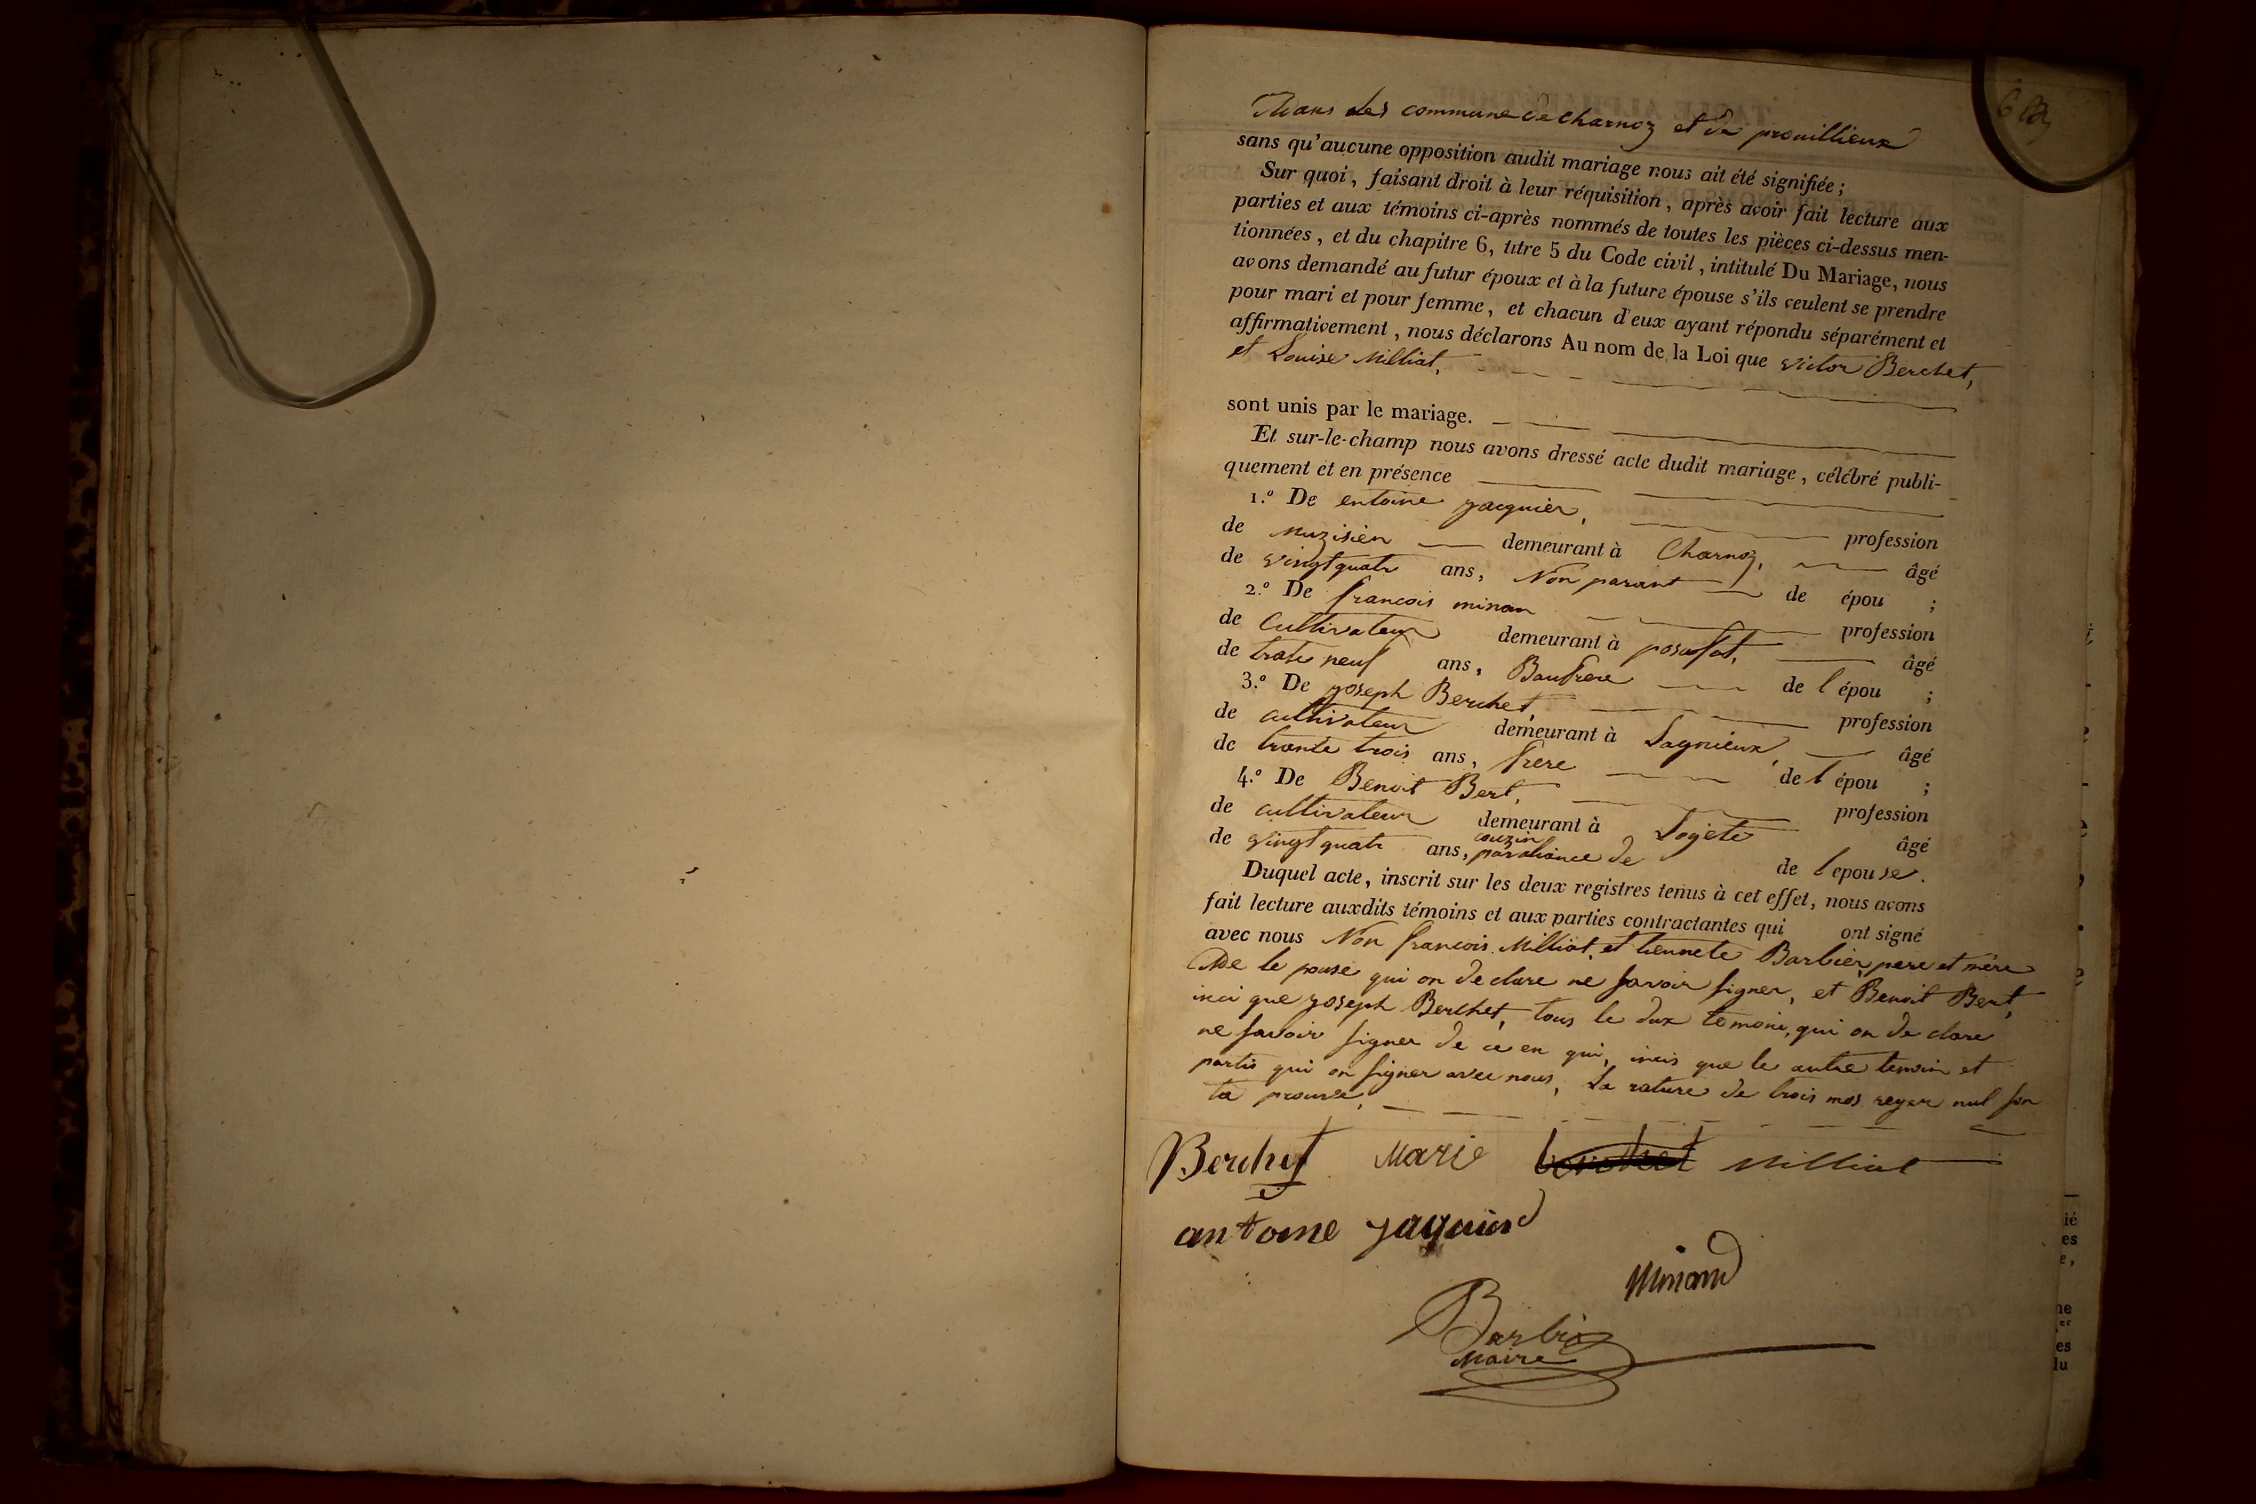 dans les commune de charnoz et de prouillieux
sans qu'aucune opposition audit mariage nous ait été signifiée ;
Sur quoi, faisant droit à leur réquisition, après avoir fait lecture aux
parties et aux témoins ci-après nommés de toutes les pièces ci-dessus men-
tionnées, et du chapitre 6, titre 5 du Code civil, intitulé Du Mariage, nous
avons demandé au futur époux et à la future épouse s'ils veulent se prendre
pour mari et pour femme, et chacun d'eux ayant répondu séparément et
affirmativement, nous déclarons Au nom de la Loi que victor Berchet,
et Louise Milliat,
sont unis par le mariage.
Et sur-le-champ nous avons dressé acte dudit mariage, célébré publi-
quement et en présence
1.º De entoine yacquier, profession
de muzisien demeurant à Charnoz, âgé
de vingt quatr ans, Non parant de épou ;
2.º De francois minan profession
de Cultivateur demeurant à posafol, âgé
de trate neuf ans, Baufrere de l épou ;
3.º De yoseph Berchet, profession
de cultivateur demeurant à Lagnieux, âgé
de trante trois ans, frere de l épou ;
4.º De Benoit Bert, profession
de cultivateur demeurant à Loyete âgé
de vingt quatr ans, couzin de l epouse.
Duquel acte, inscrit sur les deux registres tenus à cet effet, nous avons
fait lecture auxdits témoins et aux parties contractantes qui ont signé
avec nous Non francois Milliat, et tiennete Barbier, pere et mère
de le pouse qui on declare ne savoir signer, et Benoit Bert,
inci que yoseph Berchet, tous le dux temoin, qui on de clare
ne savoir signer de ce en qui, incis que le autre temoin et
partis qui on signer avec nous, La rature de trois mos reyer nul son
ta prouve,
Berchet Marie berchet Milliat
antoine yaquier
Minand
Barbier
Maire